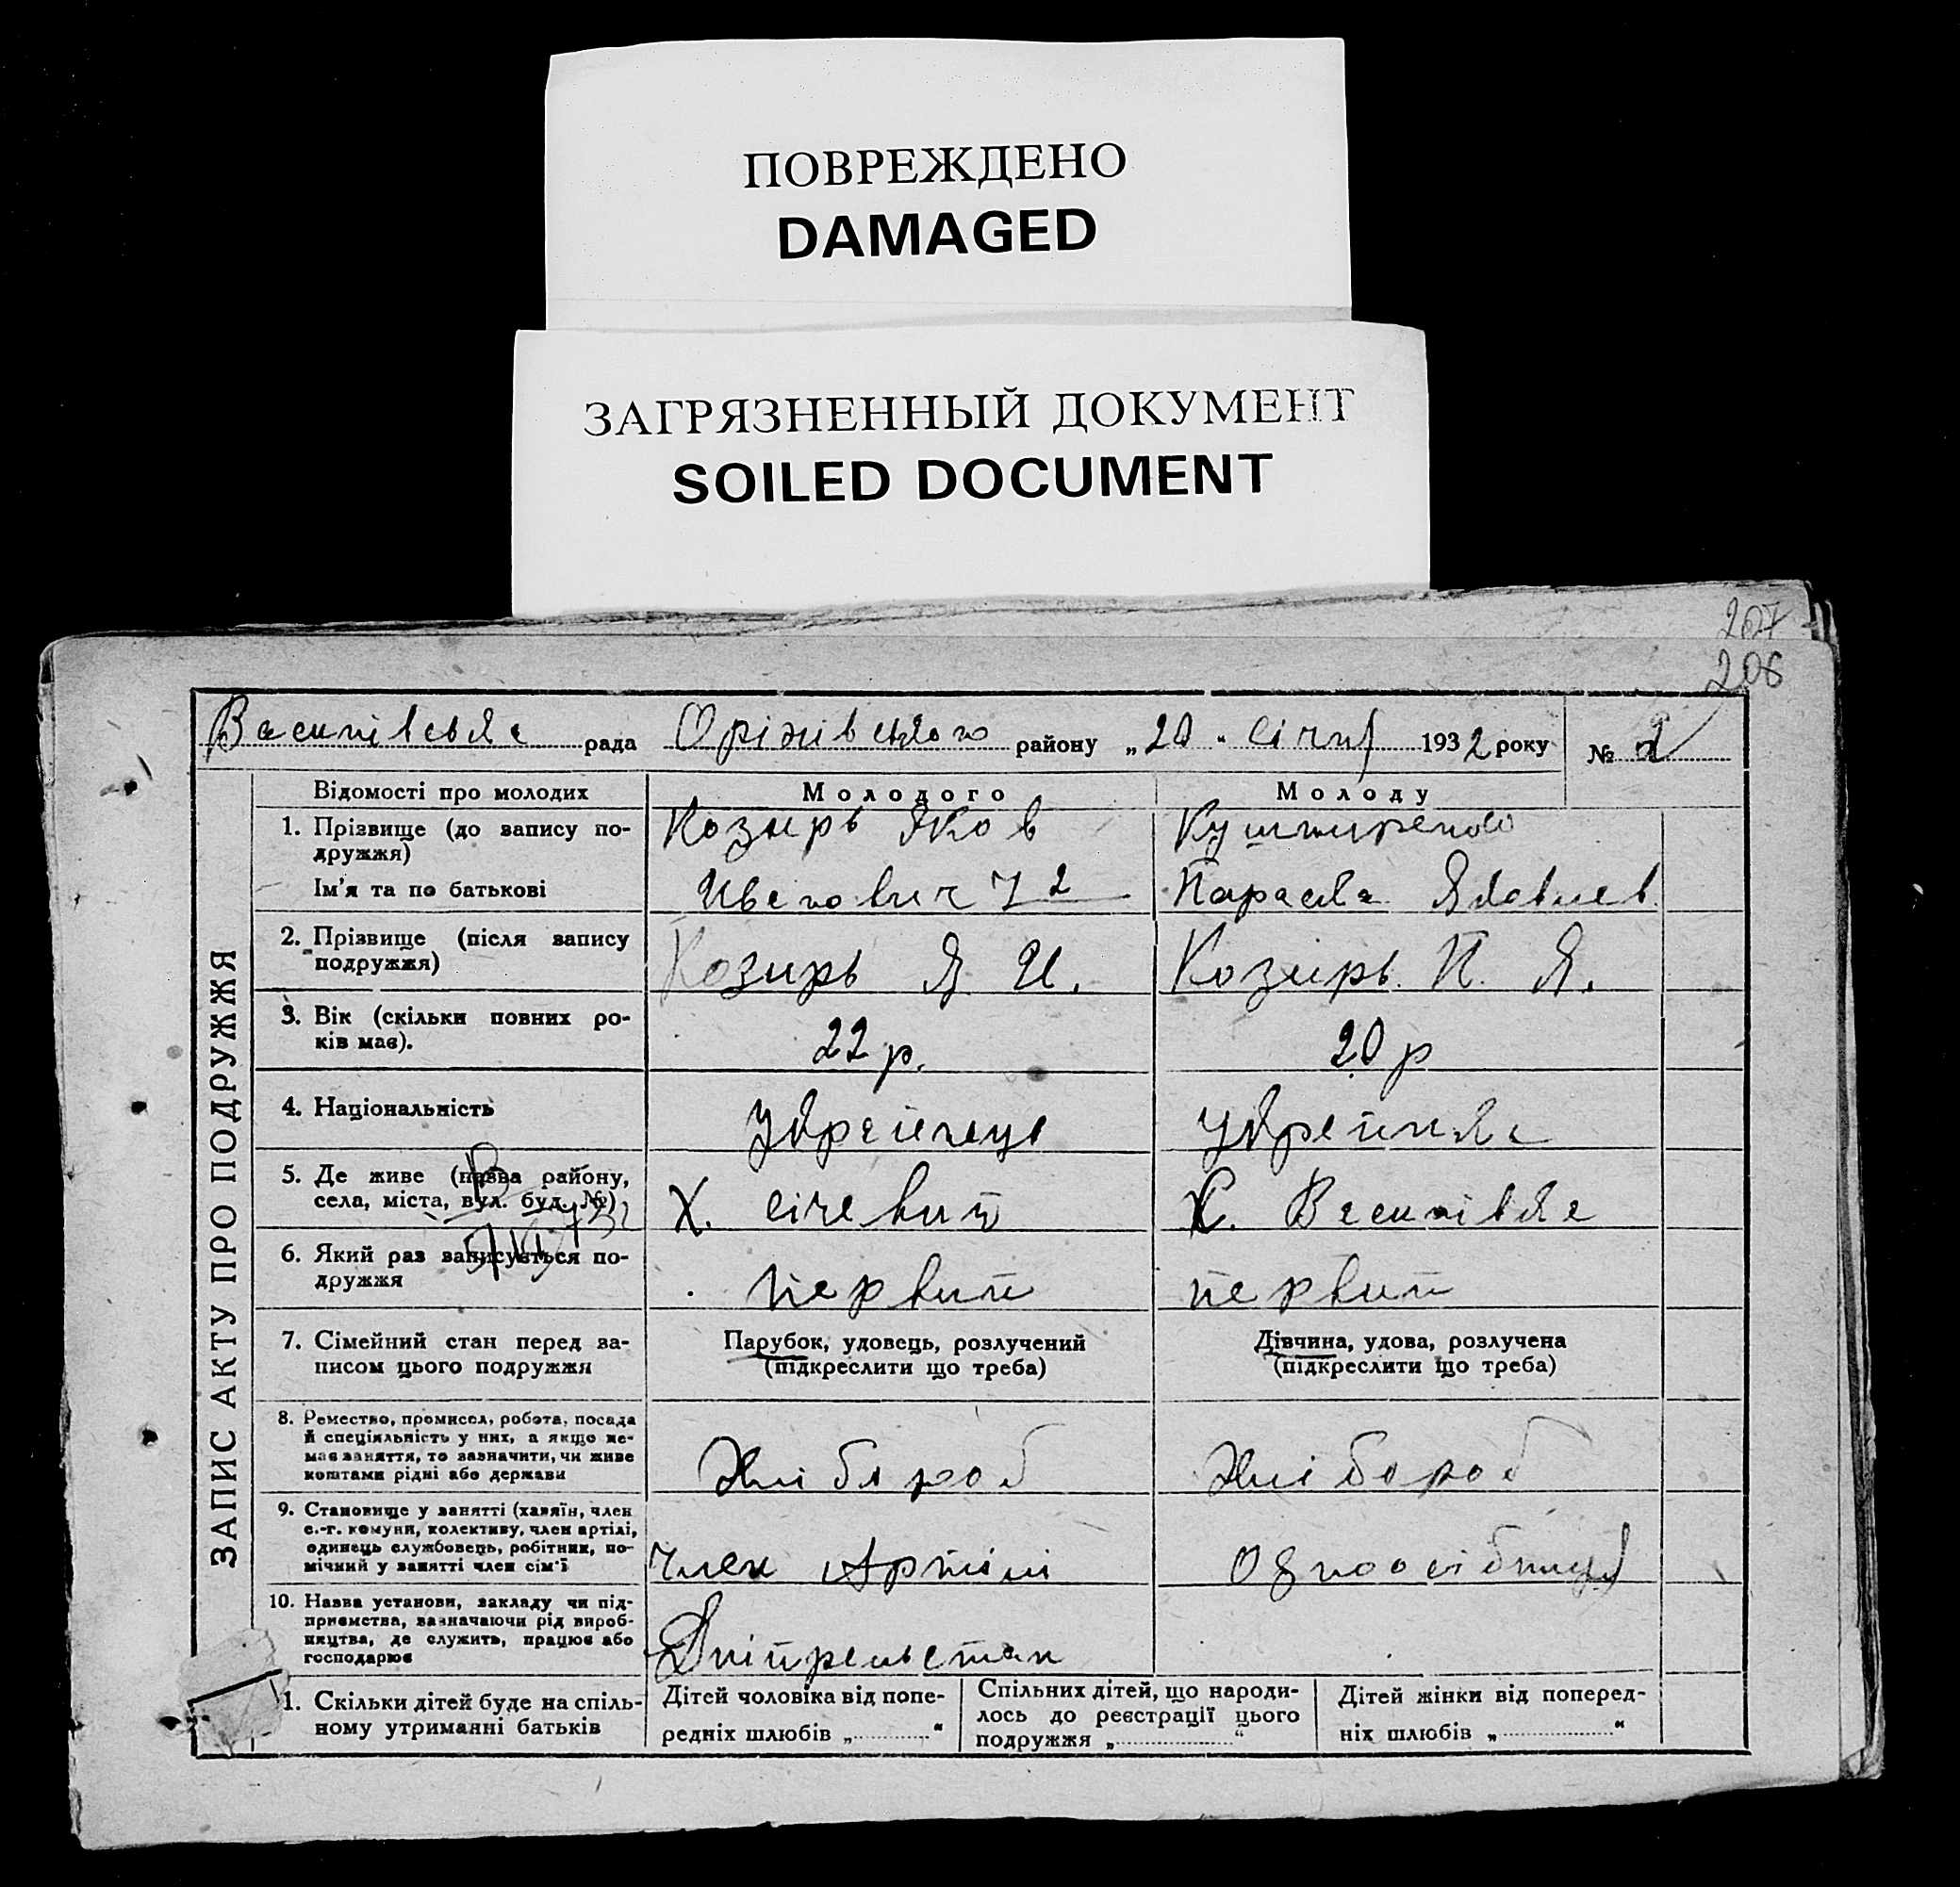 ПОВРЕЖДЕНО
DAMAGED
ЗАГРЯЗНЕННЫЙ ДОКУМЕНТ
SOILED DOCUMENT
207
206
Василівська рада Оріхівського району „20“ січня 1932 року №
ЗАПИС АКТУ ПРО ПОДРУЖЖЯ
Відомості про молодих Молодого Молоду
1. Прізвище (до запису по-
дружжя)
Козирь Яков Кушниренко
Ім'я та по батькові Иванович Параска Яковлев
2. Прізвище (після запису
подружжя)
Козирь Я. И. Козирь П. Я.
3. Вік (скільки повних ро-
ків має).
22 р. 20 р
4. Національність Українець Українка
5. Де живе (назва району,
села, міста, вул. буд. №)
Х. Січевий С. Василівка
6. Який раз записується по-
дружжя
первий первий
7. Сімейний стан перед за-
писом цього подружжя
Парубок, удовець, розлучений
(підкреслити що треба)
Дівчина, удова, розлучена
(підкреслити що треба)
8. Ремество, промисел, робота, посада
й спеціяльність у них, а якщо не-
має заняття, то зазначити, чи живе
коштами рідні або держави
Хлібороб Хлібороб
9. Становище у занятті (хазяїн, член
с.-г. комуни, колективу, член артілі,
одинець службовець, робітник, по-
мічний у занятті член сім'ї
Член Артілі Одноосібниця
10. Назва установи, закладу чи під-
приємства, зазначаючи рід вироб-
ництва, де служить, працює або
господарює
Дніпрельстан
1. Скільки дітей буде на спіль-
ному утриманні батьків
Дітей чоловіка від попе-
редніх шлюбів „ “
Спільних дітей, що народи-
лось до реєстрації цього
подружжя „ “
Дітей жінки від поперед-
ніх шлюбів „ “